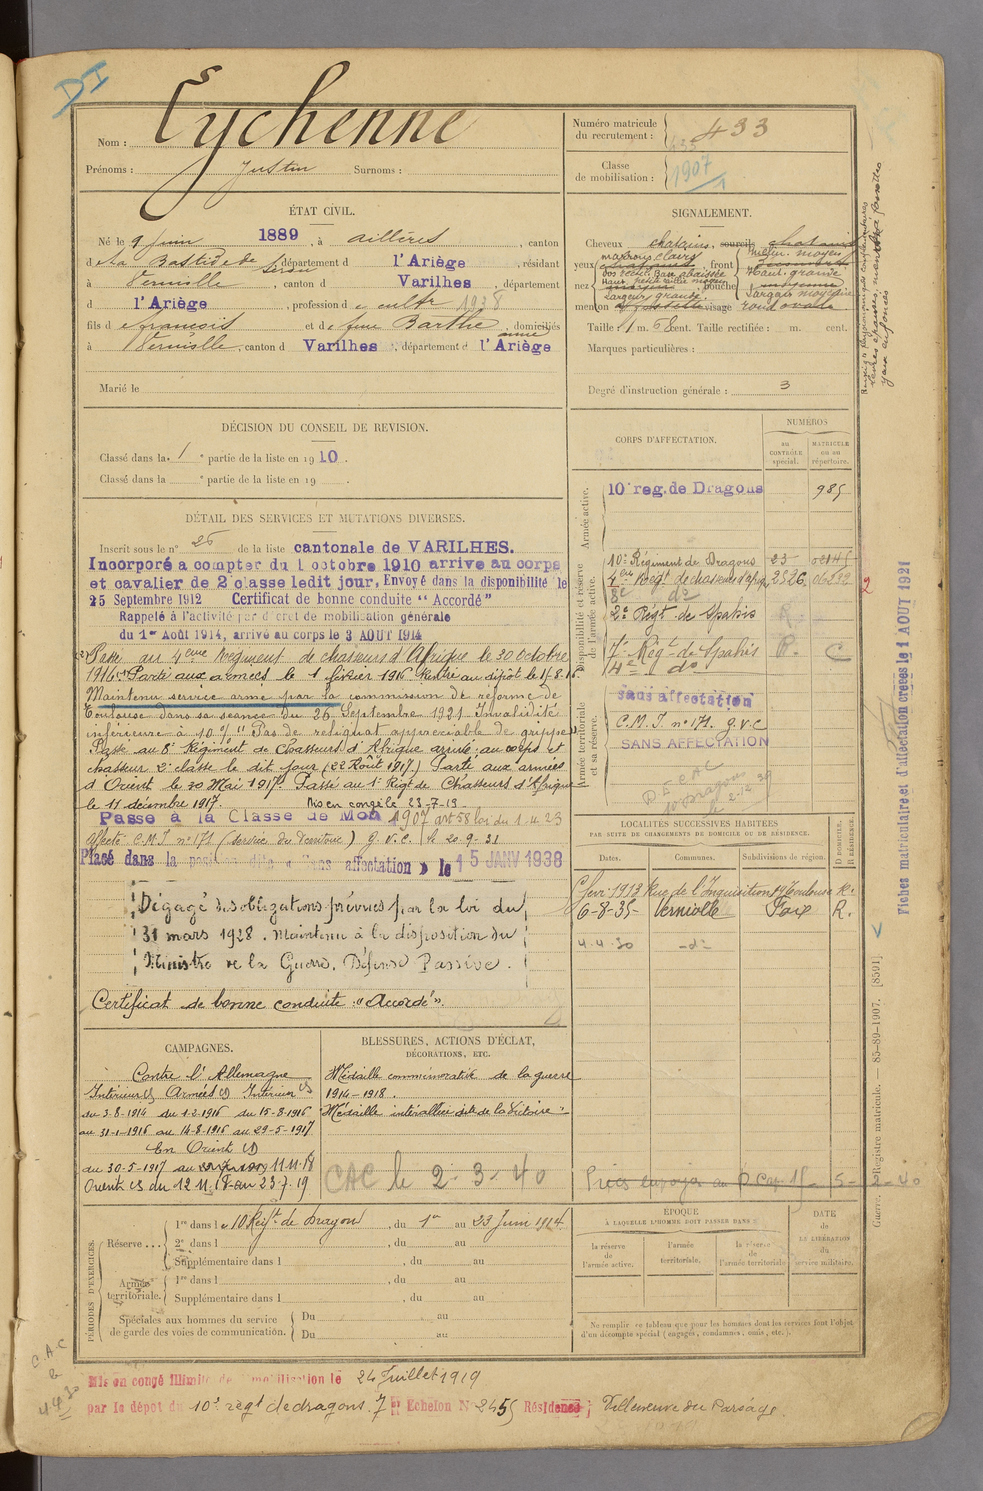 DI
Nom : Eychenne
Prénoms : Justin Surnoms :
Numéro matricule du recrutement : 433
433
Classe de mobilisation : 1907
ÉTAT CIVIL.
Né le 9 Juin 1889, à Aillères, canton
de La Bastide de Sérou, département d l'Ariège, résidant
à Verniolle, canton d Varilhes, département
d l'Ariège, profession de cultr 1938
fils de François et de feue Barthe Anne, domiciliés
à Verniolle, canton d Varilhes, département d l'Ariège
Marié le
SIGNALEMENT.
Cheveux chatains, sourcils chatains
yeux marrons clairs, front moyen
nez dos rectil. Base abaissée Haut. grande
Haut. saillie moyen, bouche moyenne
Largeur grande. Largeur moyenne
menton visage rond ovale
Taille : 1 m. 6 cent. Taille rectifiée : m. cent.
Marques particulières :
Degré d'instruction générale : 3
Renseignts physionomiques complémentaires
lèvres épaisses, menton à fossettes
yeux enfoncés
DÉCISION DU CONSEIL DE REVISION.
Classé dans la 1 e partie de la liste en 1910.
Classé dans la e partie de la liste en 19 .
DÉTAIL DES SERVICES ET MUTATIONS DIVERSES.
Inscrit sous le n° 26 de la liste cantonale de VARILHES.
Incorporé a compter du 1 octobre 1910 arrive au corps
et cavalier de 2e classe ledit jour, Envoyé dans la disponibilité le
25 Septembre 1912 Certificat de bonne conduite "Accordé"
Rappelé à l'activité par décret de mobilisation générale
du 1er Août 1914, arrivé au corps le 3 AOUT 1914
Passé au 4eme Régiment de chasseurs d'Afrique le 30 octobre
1916. Parti aux armées le 1 février 1916 Rentré au dépôt le 15-8-16
Maintenu service armé par la commission de réforme de
Toulouse dans sa séance du 26 Septembre 1921 Invalidité
inférieure à 10 % "Pas de reliquat appréciable de grippe"
Passé au 8e Régiment de Chasseurs d'Afrique arrivé au corps et
chasseur 2e classe le dit jour (22 Août 1917) Parti aux armées
d'Orient le 30 Mai 1917. Passé au 1e Régt de Chasseurs d'Afrique
le 11 décembre 1917. Mis en congé le 23-7-19
Passé à la Classe de Mob 1907 art 58 loi du 1.4.23
Affecté C.M.I n° 171 (Service du Territoire) g.v.c. le 20-9-31
Placé dans la position dite « Sans affectation » le 15 JANV 1938
Dégagé des obligations prévues par la loi du
31 mars 1928. Maintenu à la disposition du
Ministre de la Guerre. Défense Passive.
Certificat de bonne conduite : "Accordé".
CORPS D'AFFECTATION.
NUMÉROS
au CONTRÔLE spécial.
MATRICULE ou au répertoire.
Armée active.
10e reg. de Dragons 985
Disponibilité et réserve de l'armée active.
10e Régiment de Dragons 23 02145
4eme Régt de chasseurs d'afriq. 2526 06232
8e do
2e Régt de Spahis R.
7e Régt de Spahis R. C
4e do
Armée territoriale et sa réserve.
sans affectation
C.M.I n° 171. g.v.c
SANS AFFECTATION
D.E CAC
10e Dragons
le 2-12-39
2
LOCALITÉS SUCCESSIVES HABITÉES
PAR SUITE DE CHANGEMENTS DE DOMICILE OU DE RÉSIDENCE.
Dates. Communes. Subdivisions de région. D DOMICILE. R RÉSIDENCE.
6 fevr. 1913 Rue de l'Inquisition 14 Toulouse R.
6-8-35 Verniolle Foix R.
4.4.30 -do-
CAMPAGNES.
Contre l'Allemagne
Intérieur CS Armées CD Intérieur CS
du 3.8.1914 du 1.2.1916 du 15.8.1916
au 31-1-1916 au 14-8-1916 au 29-5-1917
En Orient CD
du 30-5-1917 au 11 11 18
Orient CS du 12 11 18 au 23.7.19
BLESSURES, ACTIONS D'ÉCLAT,
DÉCORATIONS, ETC.
Médaille commémorative de la guerre
1914-1918.
Médaille interalliée dite de la Victoire
CAC le 2-3-40
Pièces envoyées au D Cav 15 5-2-40
PÉRIODES D'EXERCICES.
Réserve ...
1re dans le 10 Régt de Dragon, du 1er au 23 Juin 1914.
2e dans l , du au
Supplémentaire dans l , du au
Armée territoriale.
1re dans l , du au
Supplémentaire dans l , du au
Spéciales aux hommes du service de garde des voies de communication.
Du au
Du au
ÉPOQUE
À LAQUELLE L'HOMME DOIT PASSER DANS :
la réserve de l'armée active.
l'armée territoriale.
la réserve de l'armée territoriale
DATE de LA LIBÉRATION du service militaire.
Ne remplir ce tableau que pour les hommes dont les services font l'objet
d'un décompte spécial (engagés, condamnés, omis, etc.).
Fiches matriculaire et d'affectation créées le 1 AOUT 1921
Guerre. Registre matricule. — 85-89-1907. [8591]
C.A.C
le
4 4 30
Mis en congé illimité de démobilisation le 24 Juillet 1919
par le dépôt du 10e régt de dragons. 7e Echelon N° 2455 Résidence ; Villeneuve du Paréage.